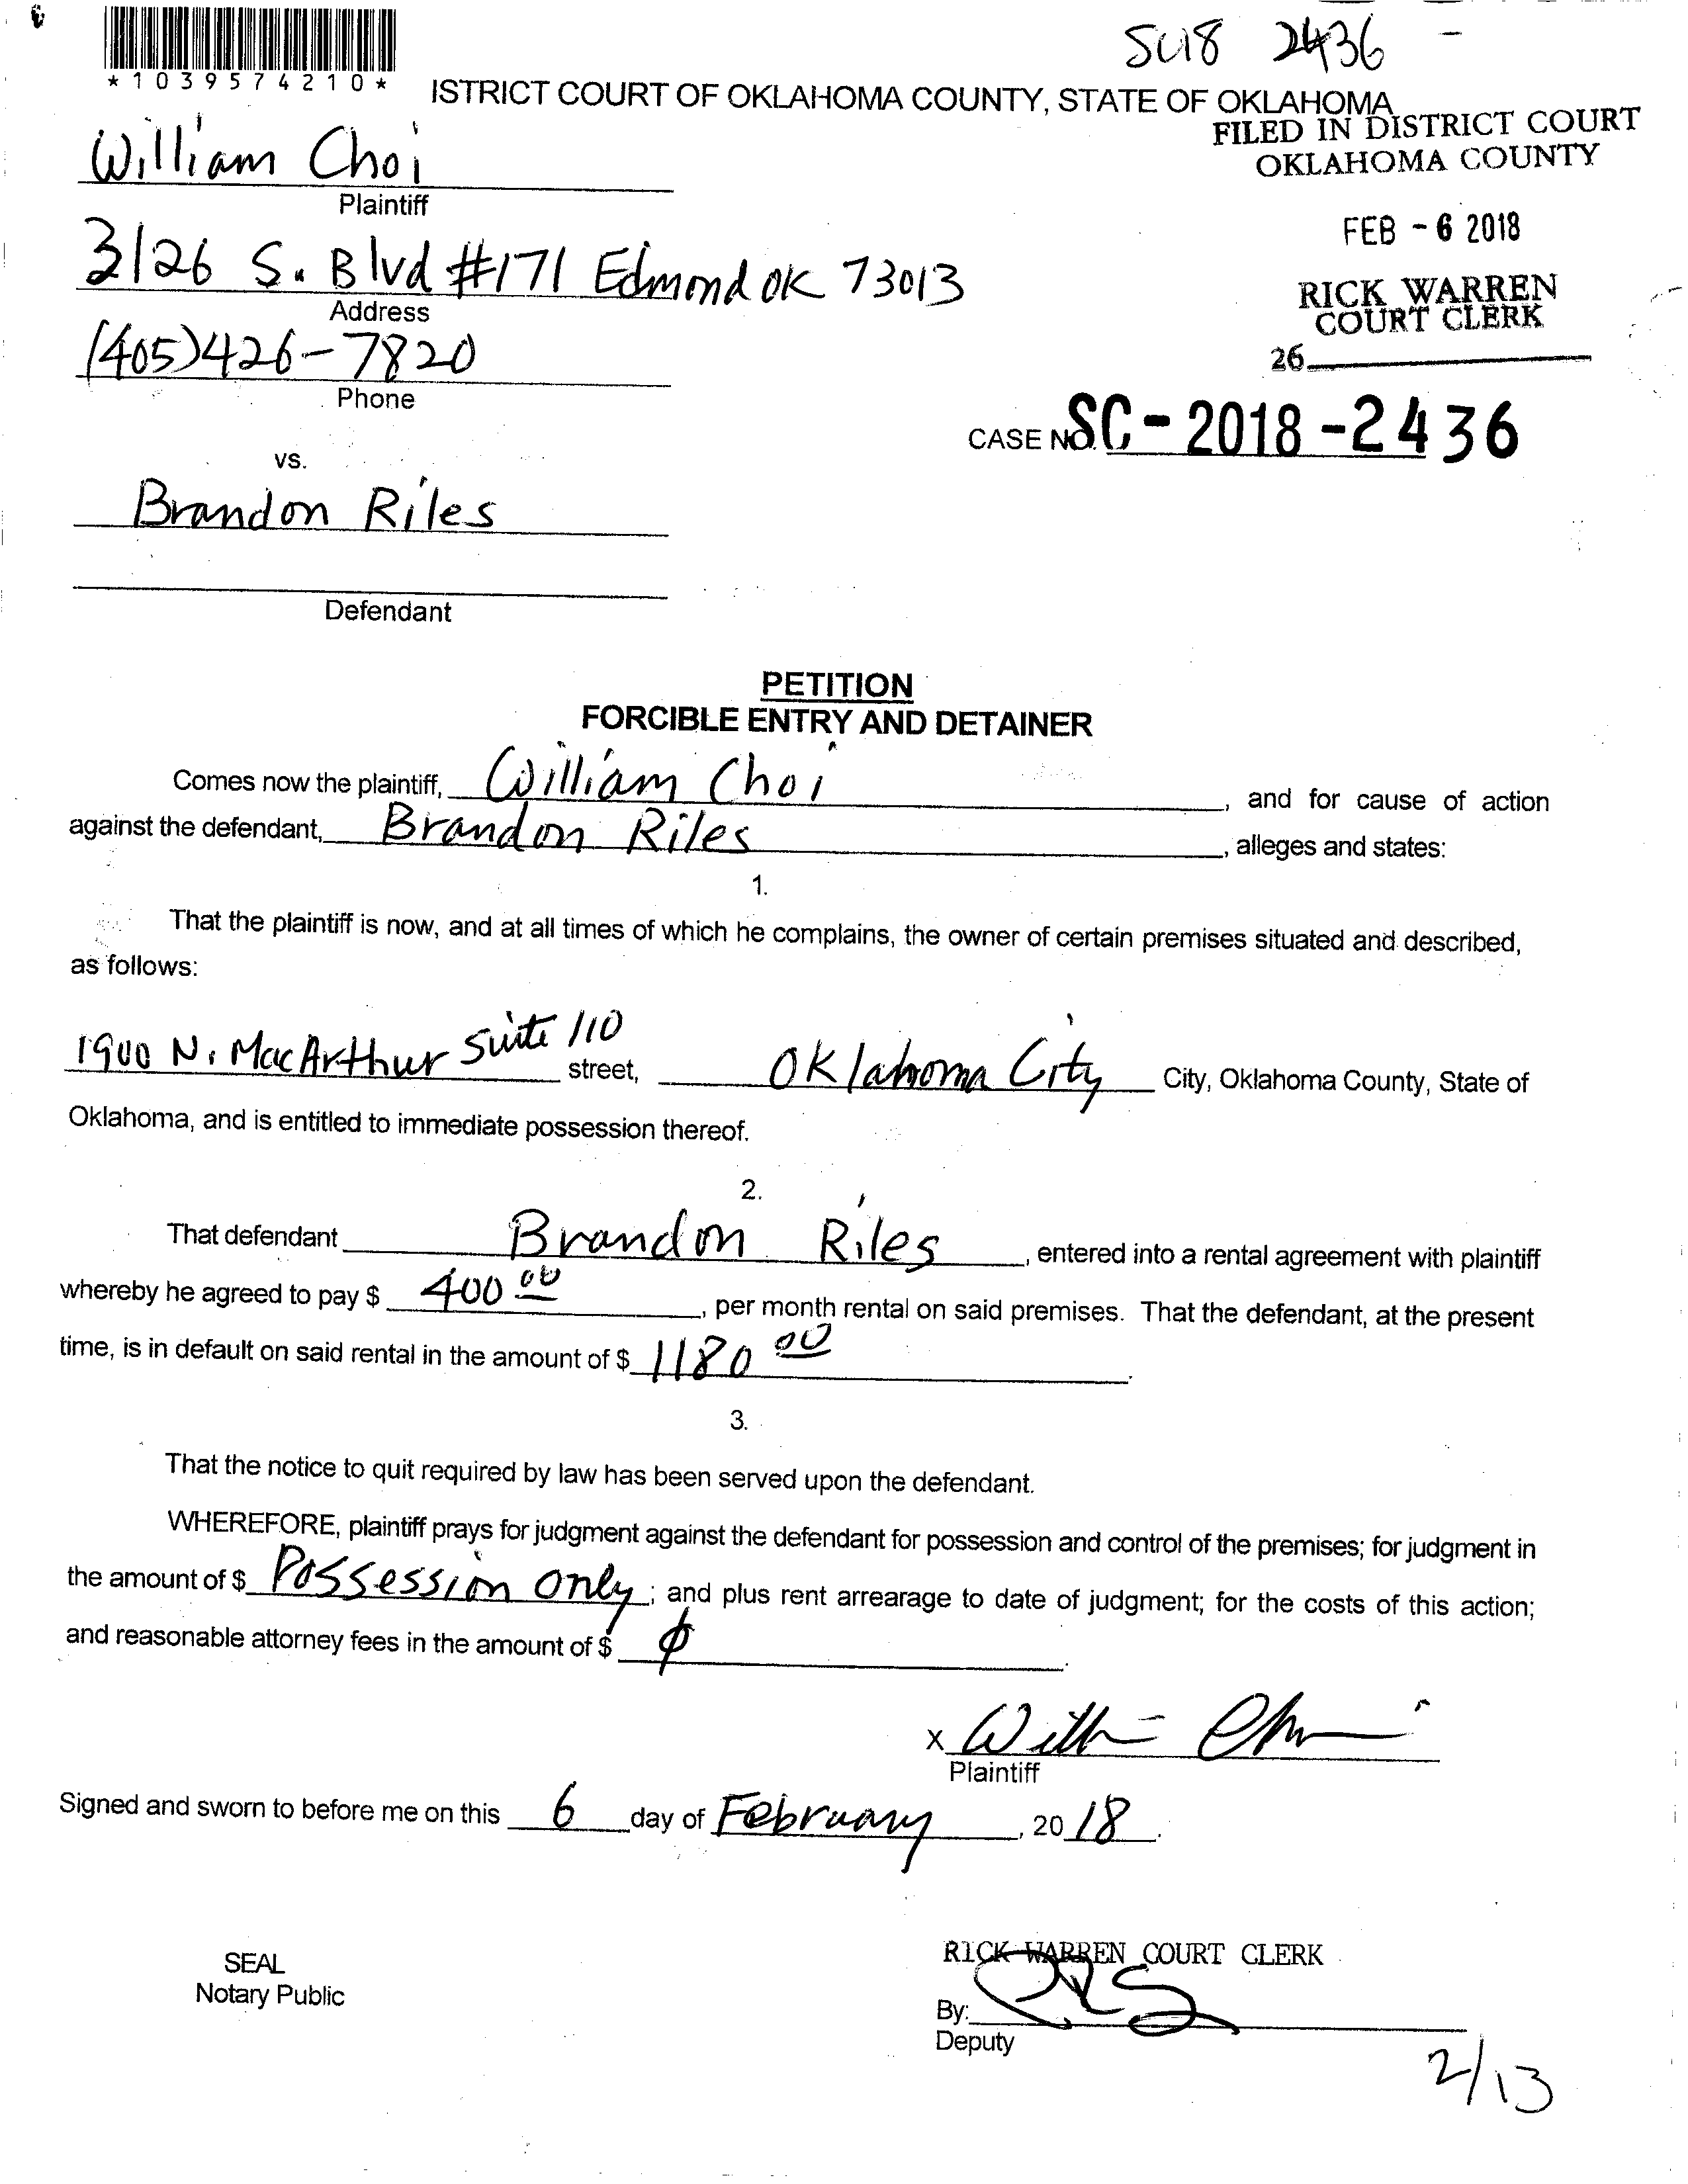 SC18 2436 -
*1039574210*
ISTRICT COURT OF OKLAHOMA COUNTY, STATE OF OKLAHOMA
FILED IN DISTRICT COURT
OKLAHOMA COUNTY
William Choi
Plaintiff
FEB - 6 2018
3126 S. Blvd #171 Edmond OK 73013
Address
RICK WARREN
COURT CLERK
(405)426-7820
26
Phone
CASE NO. SC - 2018 - 2436
vs.
Brandon Riles
Defendant
PETITION
FORCIBLE ENTRY AND DETAINER
Comes now the plaintiff, William Choi, and for cause of action
against the defendant, Brandon Riles, alleges and states:
1.
That the plaintiff is now, and at all times of which he complains, the owner of certain premises situated and described,
as follows:
1900 N. MacArthur Suite 110 street, Oklahoma City City, Oklahoma County, State of
Oklahoma, and is entitled to immediate possession thereof.
2.
That defendant Brandon Riles, entered into a rental agreement with plaintiff
whereby he agreed to pay $ 400 00, per month rental on said premises. That the defendant, at the present
time, is in default on said rental in the amount of $ 1180 00.
3.
That the notice to quit required by law has been served upon the defendant.
WHEREFORE, plaintiff prays for judgment against the defendant for possession and control of the premises; for judgment in
the amount of $ Possession only; and plus rent arrearage to date of judgment; for the costs of this action;
and reasonable attorney fees in the amount of $ ϕ.
X Willi Choi
Plaintiff
Signed and sworn to before me on this 6 day of February, 20 18.
SEAL
Notary Public
RICK WARREN COURT CLERK
By:
Deputy
2/13